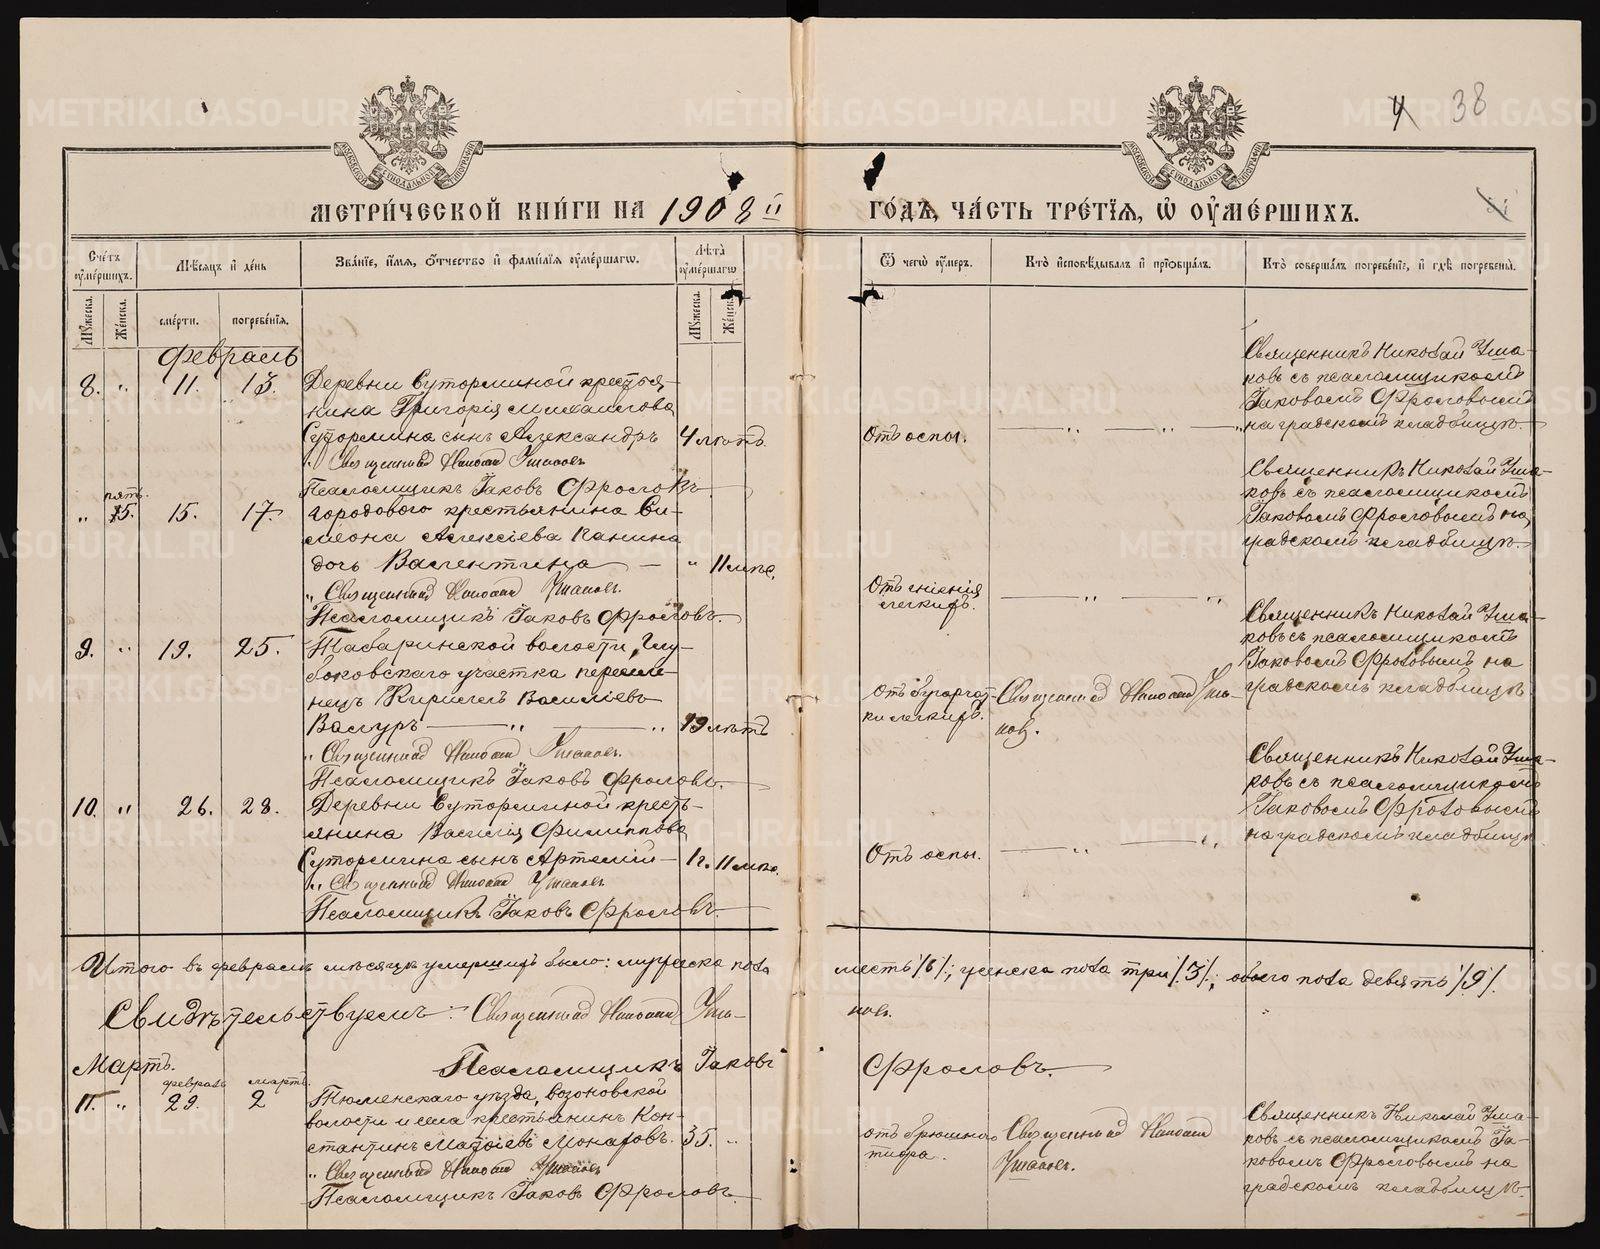 4 38
МЕТРИ́ЧЕСКОЙ КНИ́ГИ НА 1908 й ГО́ДЪ, ЧА́СТЬ ТРЕ́ТЇѦ, Ѡ҆ ОУ҆МЕ́РШИХЪ.
Сче́тъ оу҆ме́ршихъ.
Мѣ́сѧцъ и҆ де́нь
Зва́нїе, и҆́мѧ, ѻ҆́тчество и҆ фами́лїѧ оу҆ме́ршагѡ.
Лѣ́та оу҆ме́ршагѡ
Ѿ чегѡ̀ оу҆́меръ.
Кто̀ и҆сповѣ́дывалъ и҆ прїѡбща́лъ.
Кто̀ соверша́лъ погребе́нїе, и҆ гдѣ̀ погребены̀.
Мꙋ́жеска.
Же́нска.
сме́рти.
погребе́нїѧ.
Мꙋ́жеска.
Же́нска.
Февраль
8. " 11. 13. Деревни Сутормыной крестья-
нина Григорія Михаилова
Сутормина сынъ Александръ 4 лѣтъ.
" Священникъ Николай Ушаковъ
Псаломщикъ Іаковъ Фроловъ
Отъ оспы.
Священникъ Николай Уша-
ковъ съ псаломщикомъ
Іаковомъ Фроловымъ
на градскомъ кладбищѣ.
пять.
" 5. 15. 17. городового крестьянина Си-
меона Алексіева Канина
дочь Валентина " 11 мѣс.
" Священникъ Николай Ушаковъ.
Псаломщикъ Іаковъ Фроловъ.
Отъ гніенія
легкихъ.
Священникъ Николай Уша-
ковъ съ псаломщикомъ
Іаковомъ Фроловымъ на
градскомъ кладбищѣ.
9. " 19. 25. Табаринской волости, Глу-
боковскаго участка пересле-
нецъ Кириллъ Василіевъ
Валуръ " " 19 лѣтъ
" Священникъ Николай Ушаковъ.
Псаломщикъ Іаковъ Фроловъ.
Священникъ Николай Уша-
ковъ.
Священникъ Николай Уша-
ковъ съ псаломщикомъ
Іаковомъ Фроловымъ на
градскомъ кладбищѣ.
10. " 26. 28. Деревни Сутормыной кресть-
янина Василія Филиппова
Сутормина сынъ Артемій 1 г. 11 мѣс.
" Священникъ Николай Ушаковъ
Псаломщикъ Іаковъ Фроловъ.
Отъ оспы.
Священникъ Николай Уша-
ковъ съ псаломщикомъ
Іаковомъ Фроловымъ
на градскомъ кладбищѣ.
Итого въ февралѣ мѣсяцѣ умершихъ было: мужеска пола шесть /6/; женска пола три /3/, обоего пола девять /9/.
Свидѣтельствуемъ: Священникъ Николай Ушаковъ.
Мартъ. Псаломщикъ Іаковъ Фроловъ.
февраль мартъ.
11. " 29. 2 Тюменскаго уѣзда,
волости и села крестьянинъ Кон-
стантинъ 35. "
" Священникъ Николай Ушаковъ
Псаломщикъ Іаковъ Фроловъ.
отъ брюшного
тифа.
Священникъ Николай
Ушаковъ.
Священникъ Николай Уша-
ковъ съ псаломщикомъ Іа-
ковомъ Фроловымъ на
градскомъ кладбищѣ.
METRIKI.GASO-URAL.RU